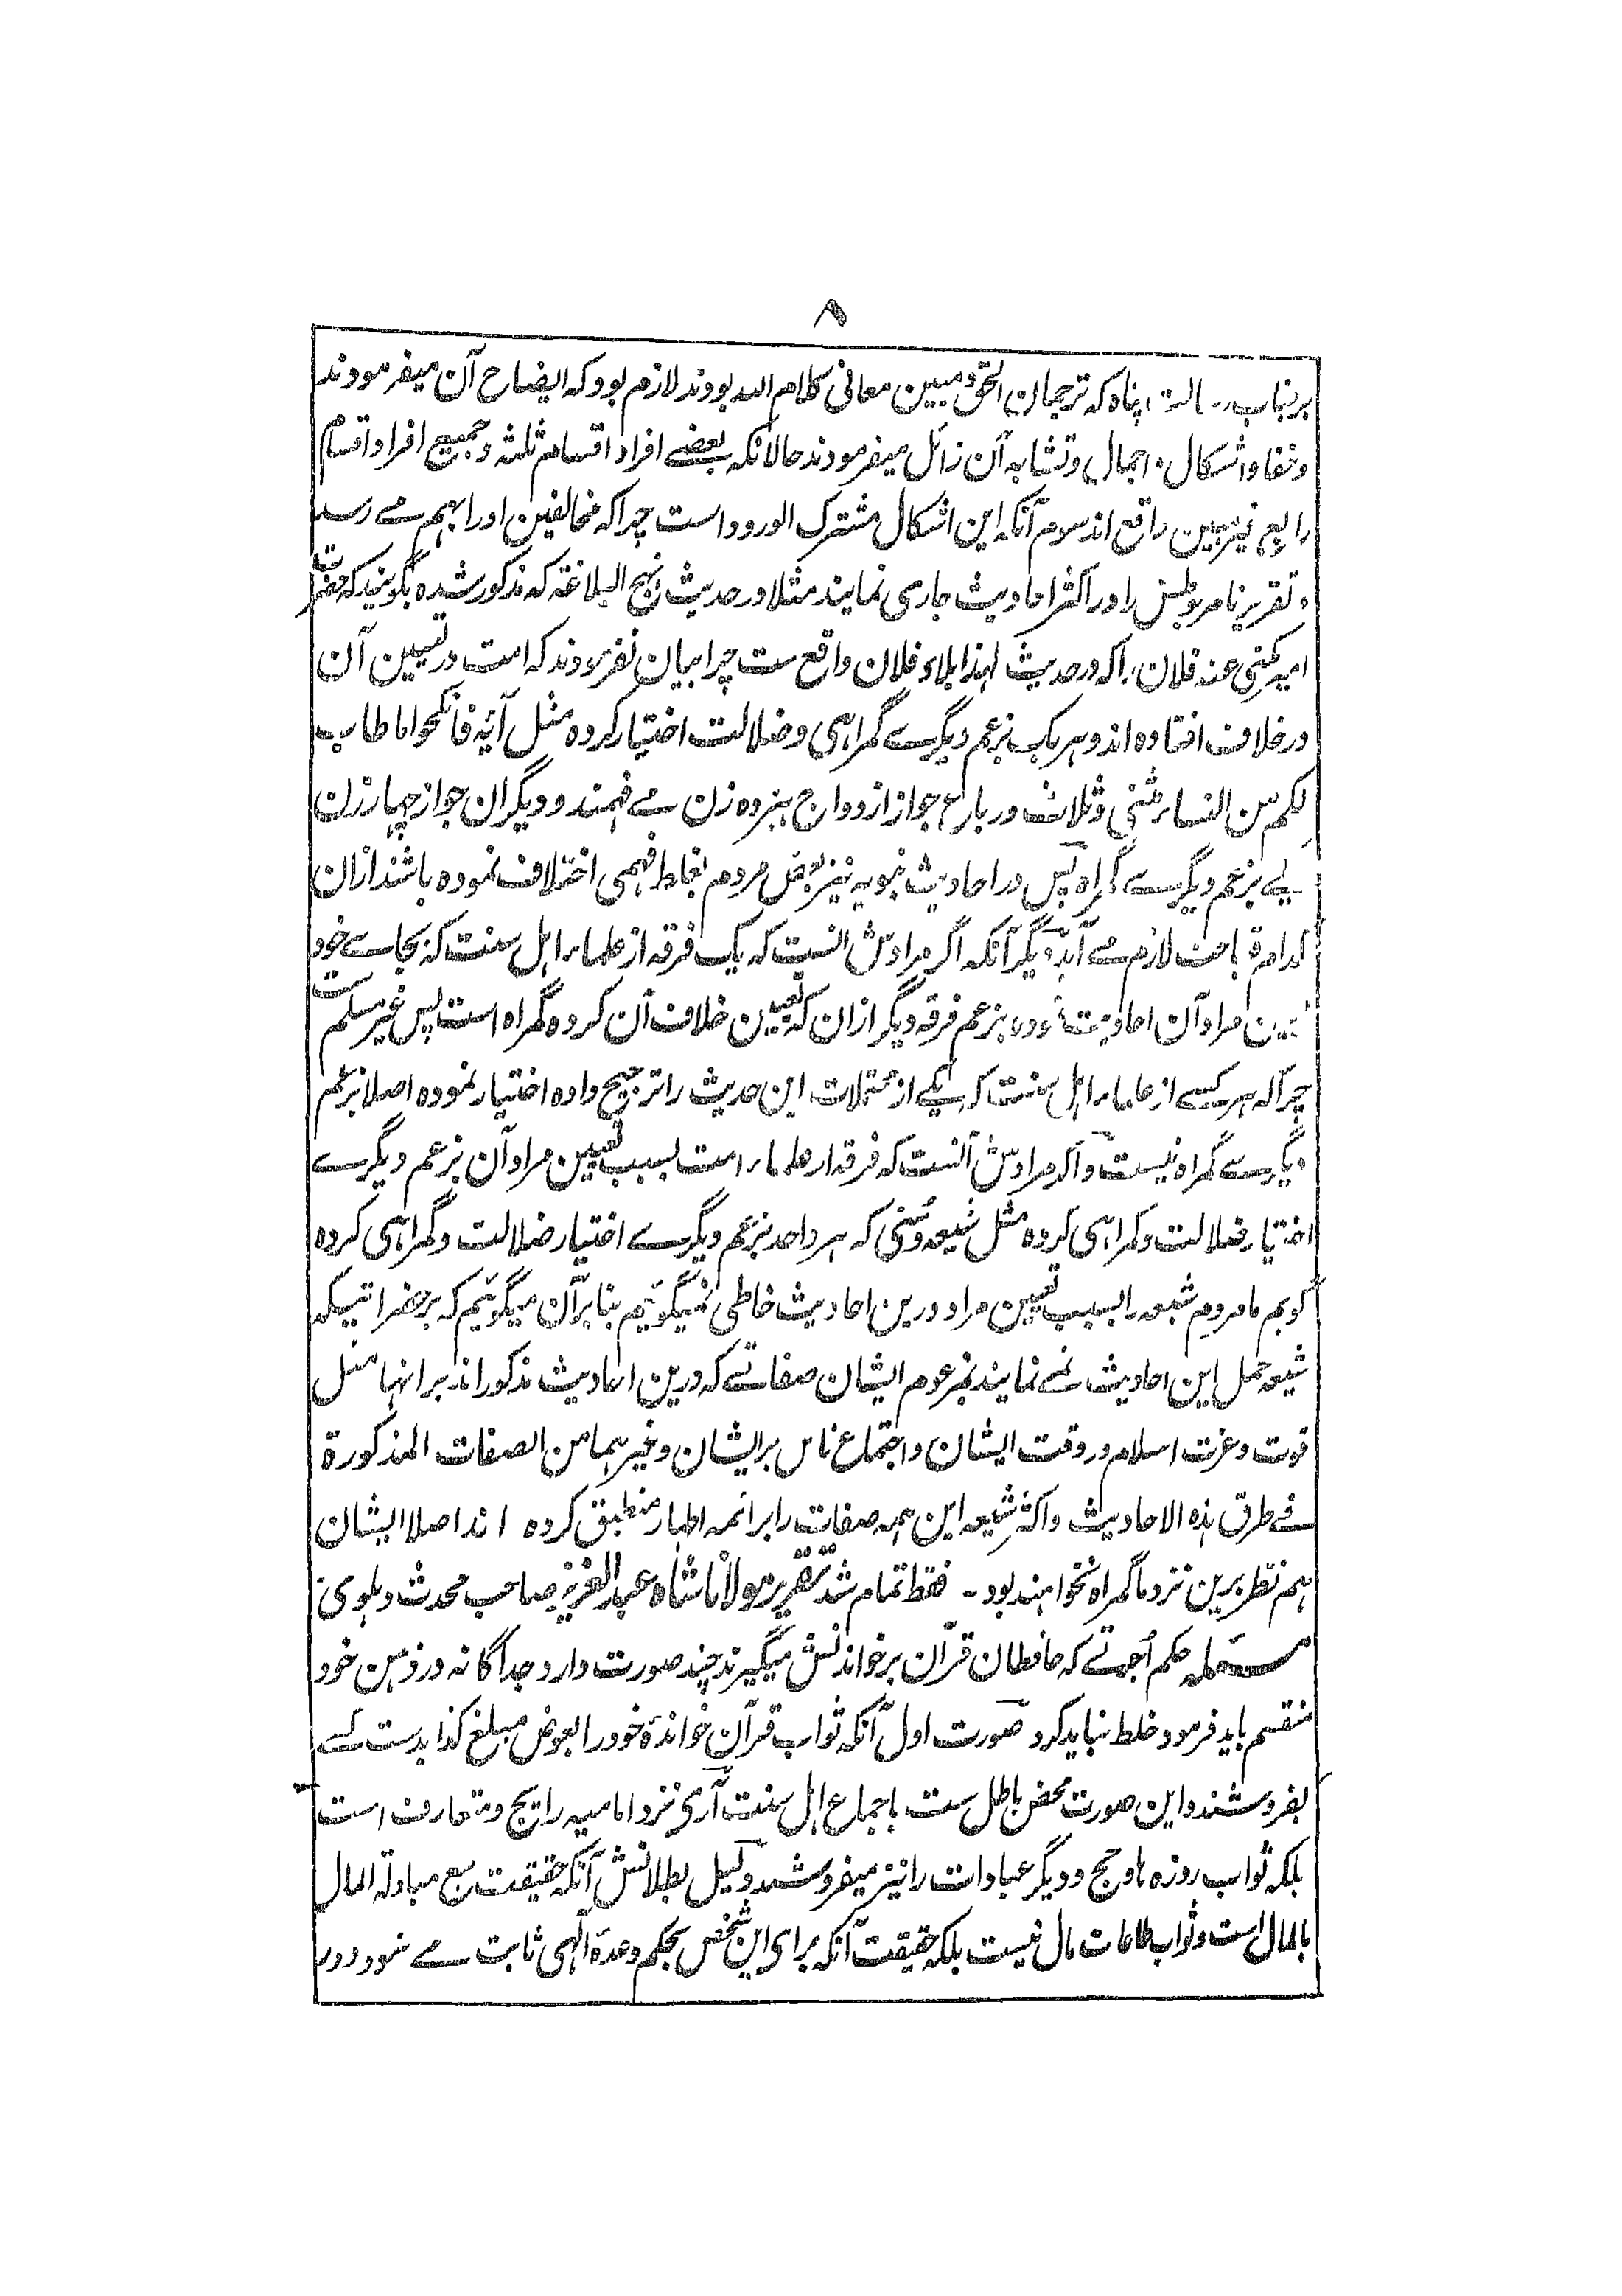 ۸
برجناب رسالت پناه که ترجمان الحق و مبین معانی کلام الله بودند لازم بود که ایضاح آن میفرمودند
وخفا واشکال و اجمال وتشابه آن زائل میفرمودند حالانکه بعضے افراد اقسام ثلثه و جمیع افراد اقسام
رابع غیر مبین واقع اند سوم آنکه این اشکال مشترک الورود است چراکه مخالفین اورا بهم مے رسد
و تقریر نامربوطش را در اکثر احادیث جاری نمایند مثلا در حدیث نهج البلاغة که مذکور شده بگویند که حضرت
امیر مکنی عنه فلان را که در حدیث لهذا بلاد فلان واقع ست چرا بیان نفرمودند که امت در تعیین آن
در خلاف افتاده اند و هر یک بزعم دیگرے گمراهی و ضلالت اختیار کرده مثل آیۀ فانکحوا ما طاب
لکم من النساء مثنی وثلاث ورباع جواز ازدواج هیزده زن مے فهمند و دیگران جواز چهار زن
بزعم دیگرے گمراه پس در احادیث نبویه نیز بعض مردم بغلط فهمی اختلاف نموده باشند ازان
کدام قباحت لازم مے آید دیگر آنکه اگر مرادش انست که یک فرقه از علماء اهل سنت که بجاے خود
تعیین مراد آن احادیث نموده بزعم فرقه دیگر ازان که تعیین خلاف آن کرده گمراه است پس غیر مسلم ست
چراکه هر کسے از علماء اهل سنت که یکے از محتملات این حدیث را ترجیح داده اختیار نموده اصلا بزعم
دیگرے گمراه نیست و اگر مرادش آنست که فرقه از علماء امت بسبب تعیین مراد آن بزعم دیگرے
اختیار ضلالت وگمراهی کرده مثل شیعه و سنی که هر واحد بزعم دیگرے اختیار ضلالت و گمراهی کرده
گویم ما مردم شیعه را بسبب تعیین مراد درین احادیث خاطی نمیگوئیم بنا بر آن میگوئیم که بر حضراتیکه
شیعه حمل این احادیث نمے نمایند بمزعوم ایشان صفاتے که درین احادیث مذکور اند بر انها مثل
قوت وعزت اسلام در وقت ایشان و اجتماع ناس بر ایشان وغیرهما من الصفات المذکورة
فے طرق هذه الاحادیث و اکثر شیعه این همه صفات را بر ائمه اطهار منطبق کرده اند اصلا ایشان
هم نظر برین نزد ما گمراه نخواهند بود - فقط تمام شد تقریر مولانا شاه عبدالعزیز صاحب محدث دهلوی
مسئله حکم اجرتے که حافظان قرآن بر خواندنش میگیرند چند صورت دارد جداگانه در ذهن خود
منقسم باید فرمود خلط نباید کرد صورت اول آنکه ثواب قرآن خواندۀ خود را بعوض مبلغ کذا بدست کسے
بفروشند و این صورت محض باطل ست باجماع اهل سنت آری نزد امامیه رائج و متعارف است
بلکه ثواب روزه ها و حج و دیگر عبادات را نیز میفروشند دلیل بطلانش آنکه حقیقت بیع مبادلة المال
بالمال است و ثواب طاعات مال نیست بلکه حقیقت آنکه برای این شخص بحکم وعدۀ الهی ثابت مے شود در